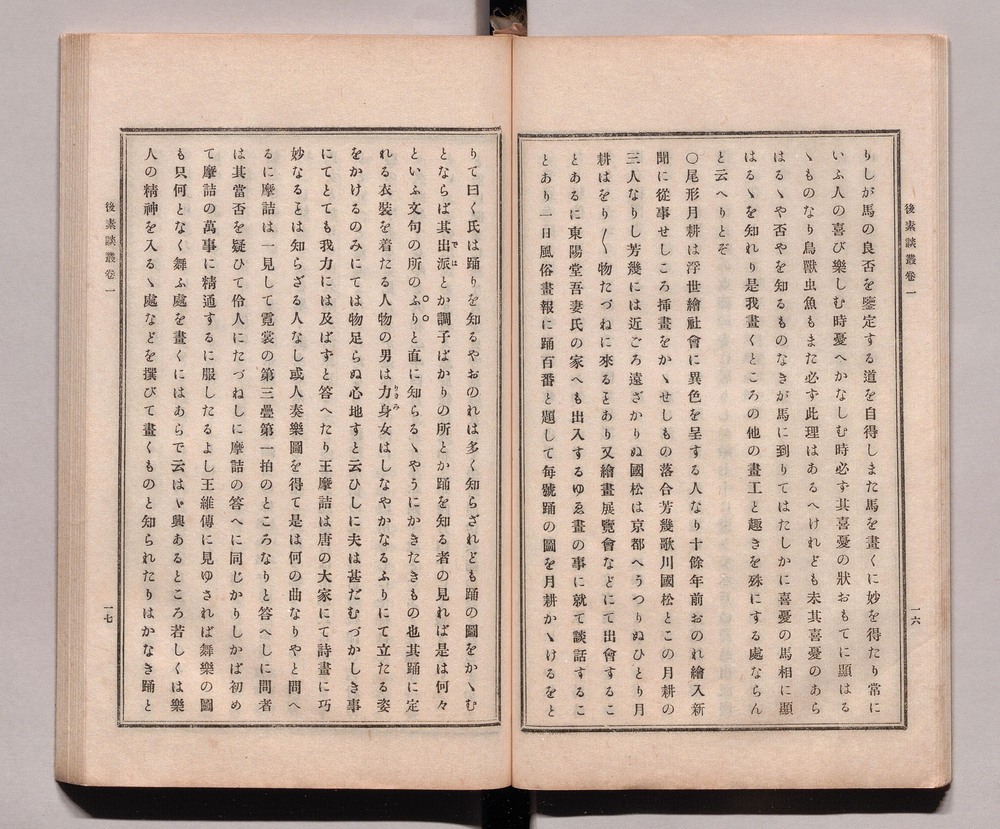 後素談叢卷一
一六
りしが馬の良否を鑒定する道を自得しまた馬を畫くに妙を得たり常に
いふ人の喜び樂しむ時憂へかなしむ時必す其喜憂の狀おもてに顯はる
ヽものなり鳥獸虫魚もまた必す此理はあるへけれども未其喜憂のあら
はるヽや否やを知るものなきが馬に到りてはたしかに喜憂の馬相に顯
はるヽを知れり是我畫くところの他の畫工と趣きを殊にする處ならん
と云へりとぞ
〇尾形月耕は浮世繪社會に異色を呈する人なり十餘年前おのれ繪入新
聞に從事せしころ揷畫をかヽせしもの落合芳幾歌川國松とこの月耕の
三人なりし芳幾には近ごろ遠ざかりぬ國松は京都へうつりぬひとり月
耕はをり〳〵物たづねに來るとあり又繪畫展覽會などにて出會するこ
とあるに東陽堂吾妻氏の家へも出入するゆゑ畫の事に就て談話するこ
とあり一日風俗畫報に踊百番と題して每號踊の圖を月耕かヽけるをと
りて曰く氏は踊りを知るやおのれは多く知らざれども踊の圖をかヽむ
とならば其出派とか調子ばかりの所とか踊を知る者の見れば是は何々
といふ文句の所のふりと直に知らるヽやうにかきたきもの也其踊に定
れる衣裝を着たる人物の男は力身女はしなやかなるふりにて立たる姿
をかけるのみにては物足らぬ心地すと云ひしに夫は甚だむづかしき事
にてとても我力には及ばずと答へたり王摩詰は唐の大家にて詩畫に巧
妙なるとは知らざる人なし或人奏樂圖を得て是は何の曲なりやと問へ
るに摩詰は一見して霓裳の第三疊第一拍のところなりと答へしに問者
は其當否を疑ひて伶人にたづねしに摩詰の答へに同じかりしかば初め
て摩詰の萬事に精通するに服したるよし王維傳に見ゆされば舞樂の圖
も只何となく舞ふ處を畫くにはあらで云はヾ興あるところ若しくは樂
人の精神を入るヽ處などを撰びて畫くものと知られたりはかなき踊と
後素談叢卷一
一七